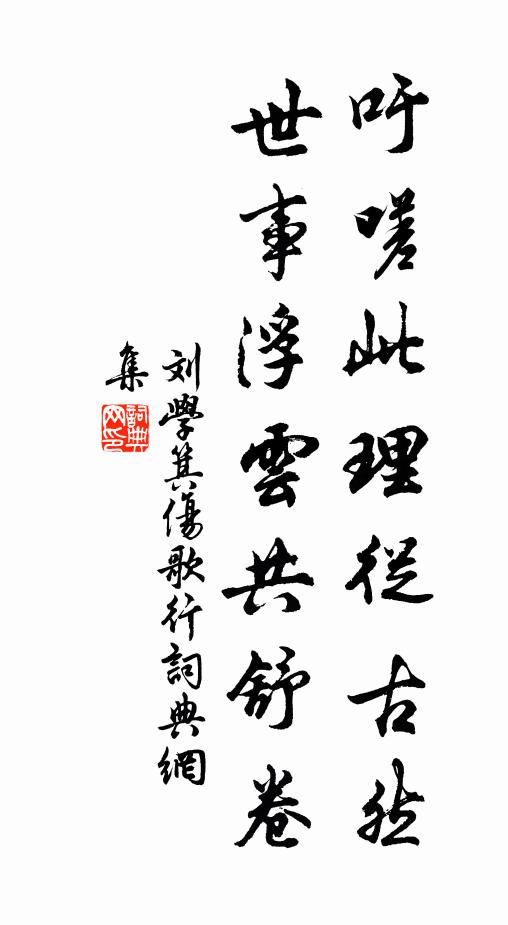 吁嗟此理從古然
世事浮雲共舒卷
刘學箕傷歌行詞典網
集
詞典网印